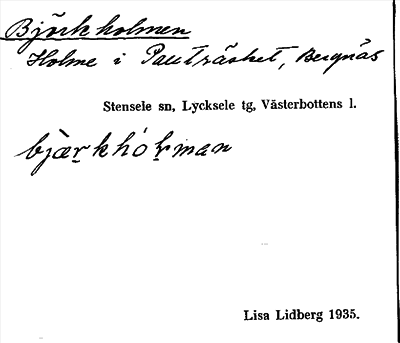 Björkholmen
Holme i Pauträsket, Bergnäs
Stensele sn, Lycksele tg, Västerbottens l.
Lisa Lidberg 1935.